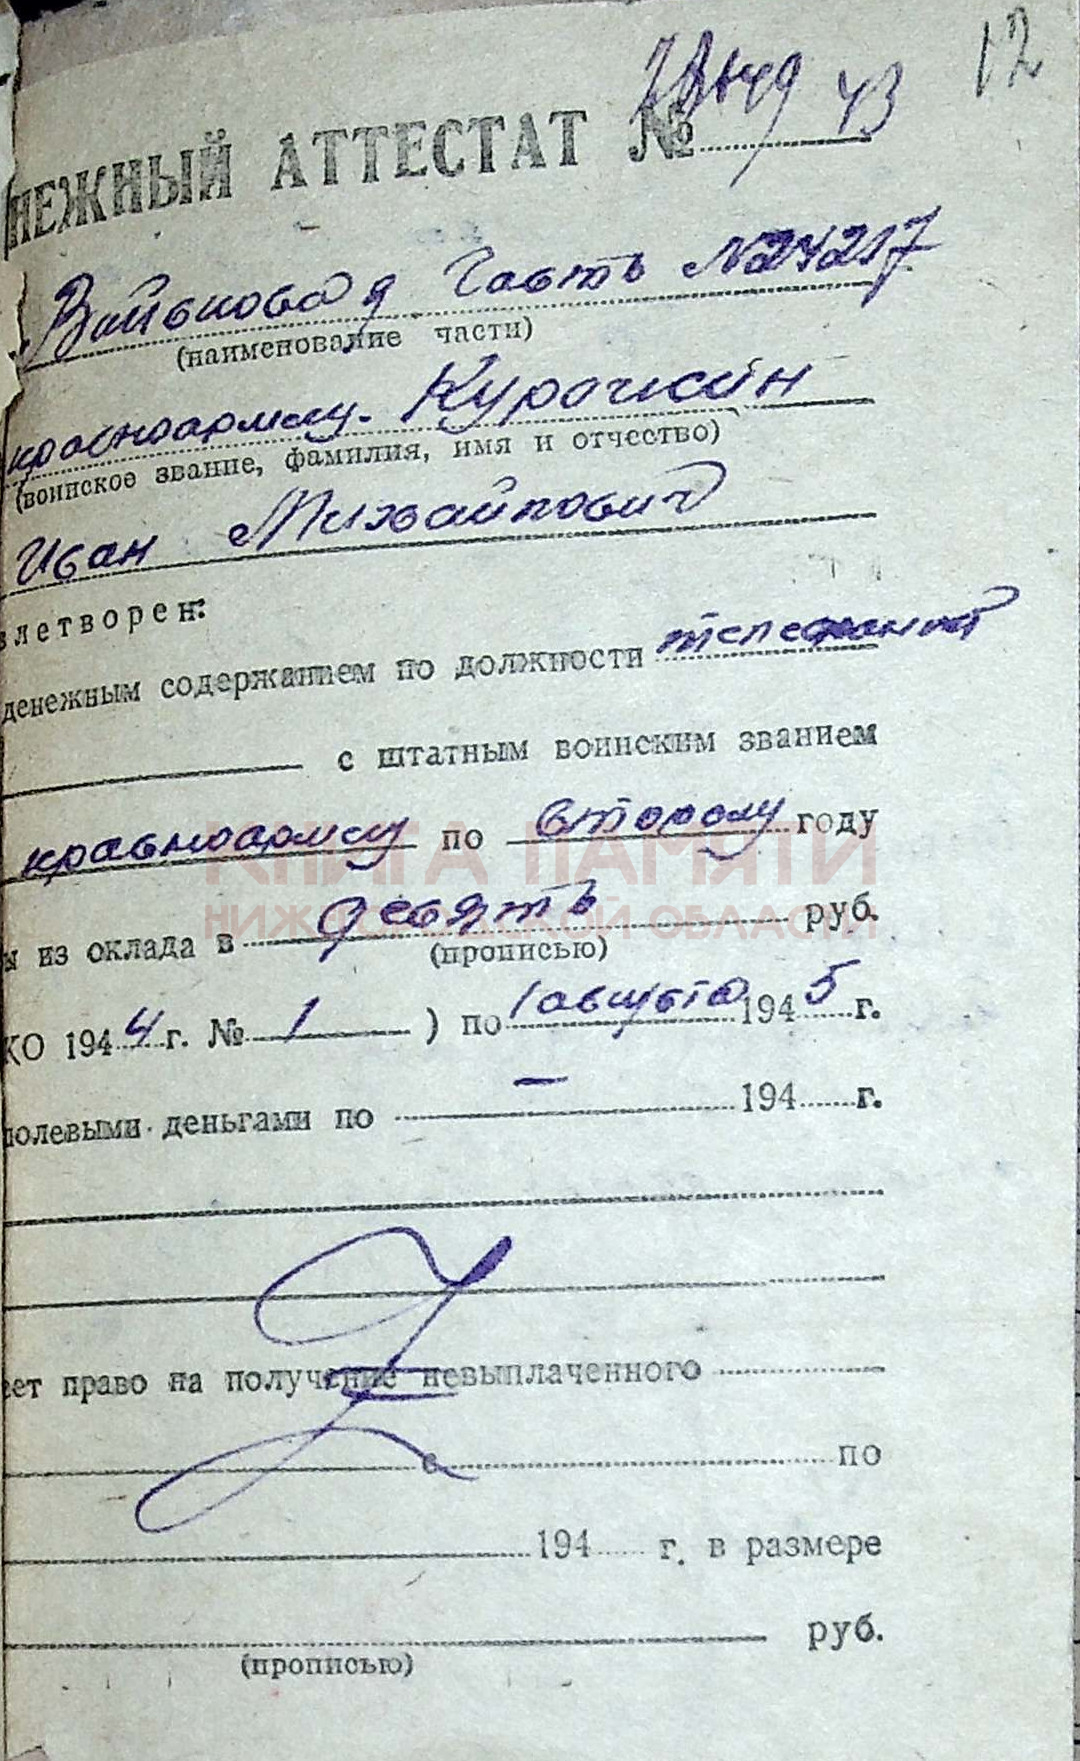 12
43
НЕЖНЫЙ АТТЕСТАТ №
Войскова я Часть №24217
(наименование части)
красноармецу. Курочкин
(воинское звание, фамилия, имя и отчество)
Иван Михайлович
влетворен:
денежным содержанием по должности телефонист
с штатным воинским званием
красноармецу по второму году
КНИГА ПАМЯТИ
НИЖЕГОРОДСКОЙ ОБЛАСТИ
ы из оклада в девять руб.
(прописью)
КО 1944 г. № 1 ) по 1 августа 1945 г.
полевыми деньгами по — 194 г.
еет право на получение невыплаченного
с по
194 г. в размере
руб.
(прописью)